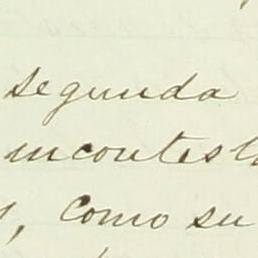 segunda
incontest
, como su